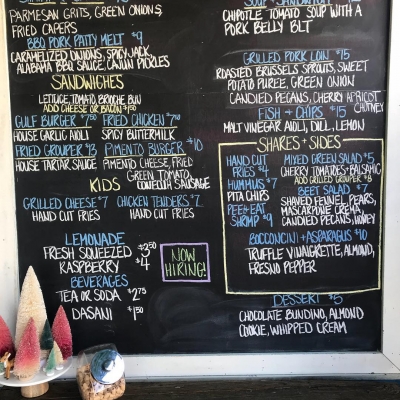 PARMESAN GRITS, GREEN ONIONS,
FRIED CAPERS
BBQ PORK PATTY MELT $9
CARAMELIZED ONIONS, SPICY JACK,
ALABAMA BBQ SAUCE, CAJUN PICKLES
SANDWICHES
LETTUCE, TOMATO, BRIOCHE BUN
ADD CHEESE OR BACON
GULF BURGER $7.50 FRIED CHICKEN $7.50
HOUSE GARLIC AIOLI SPICY BUTTERMILK
FRIED GROUPER $13 PIMENTO BURGER $10
HOUSE TARTAR SAUCE PIMENTO CHEESE, FRIED
GREEN TOMATO,
CONECUH SAUSAGE
KIDS
GRILLED CHEESE $7 CHICKEN TENDERS $7
HAND CUT FRIES HAND CUT FRIES
LEMONADE
FRESH SQUEEZED $3.50
RASPBERRY $4
BEVERAGES
TEA OR SODA $2.75
DASANI $1.50
NOW
HIRING!
CHIPOTLE TOMATO SOUP WITH A
PORK BELLY BLT
GRILLED PORK LOIN $15
ROASTED BRUSSELS SPROUTS, SWEET
POTATO PUREE, GREEN ONION
CANDIED PECANS, CHERRY APRICOT
CHUTNEY
FISH + CHIPS $15
MALT VINEGAR AIOLI, DILL, LEMON
SHARES + SIDES
HAND CUT
FRIES $4
HUMMUS $7
PITA CHIPS
PEEL & EAT
SHRIMP $9
MIXED GREEN SALAD $5
CHERRY TOMATOES + BALSAMIC
ADD GRILLED GROUPER
BEET SALAD $7
SHAVED FENNEL, PEARS,
MASCARPONE CREMA,
CANDIED PECANS, HONEY
BOCCONCINI + ASPARAGUS $10
TRUFFLE VINAIGRETTE, ALMOND,
FRESNO PEPPER
DESSERT $5
CHOCOLATE BUNDINO, ALMOND
COOKIE, WHIPPED CREAM